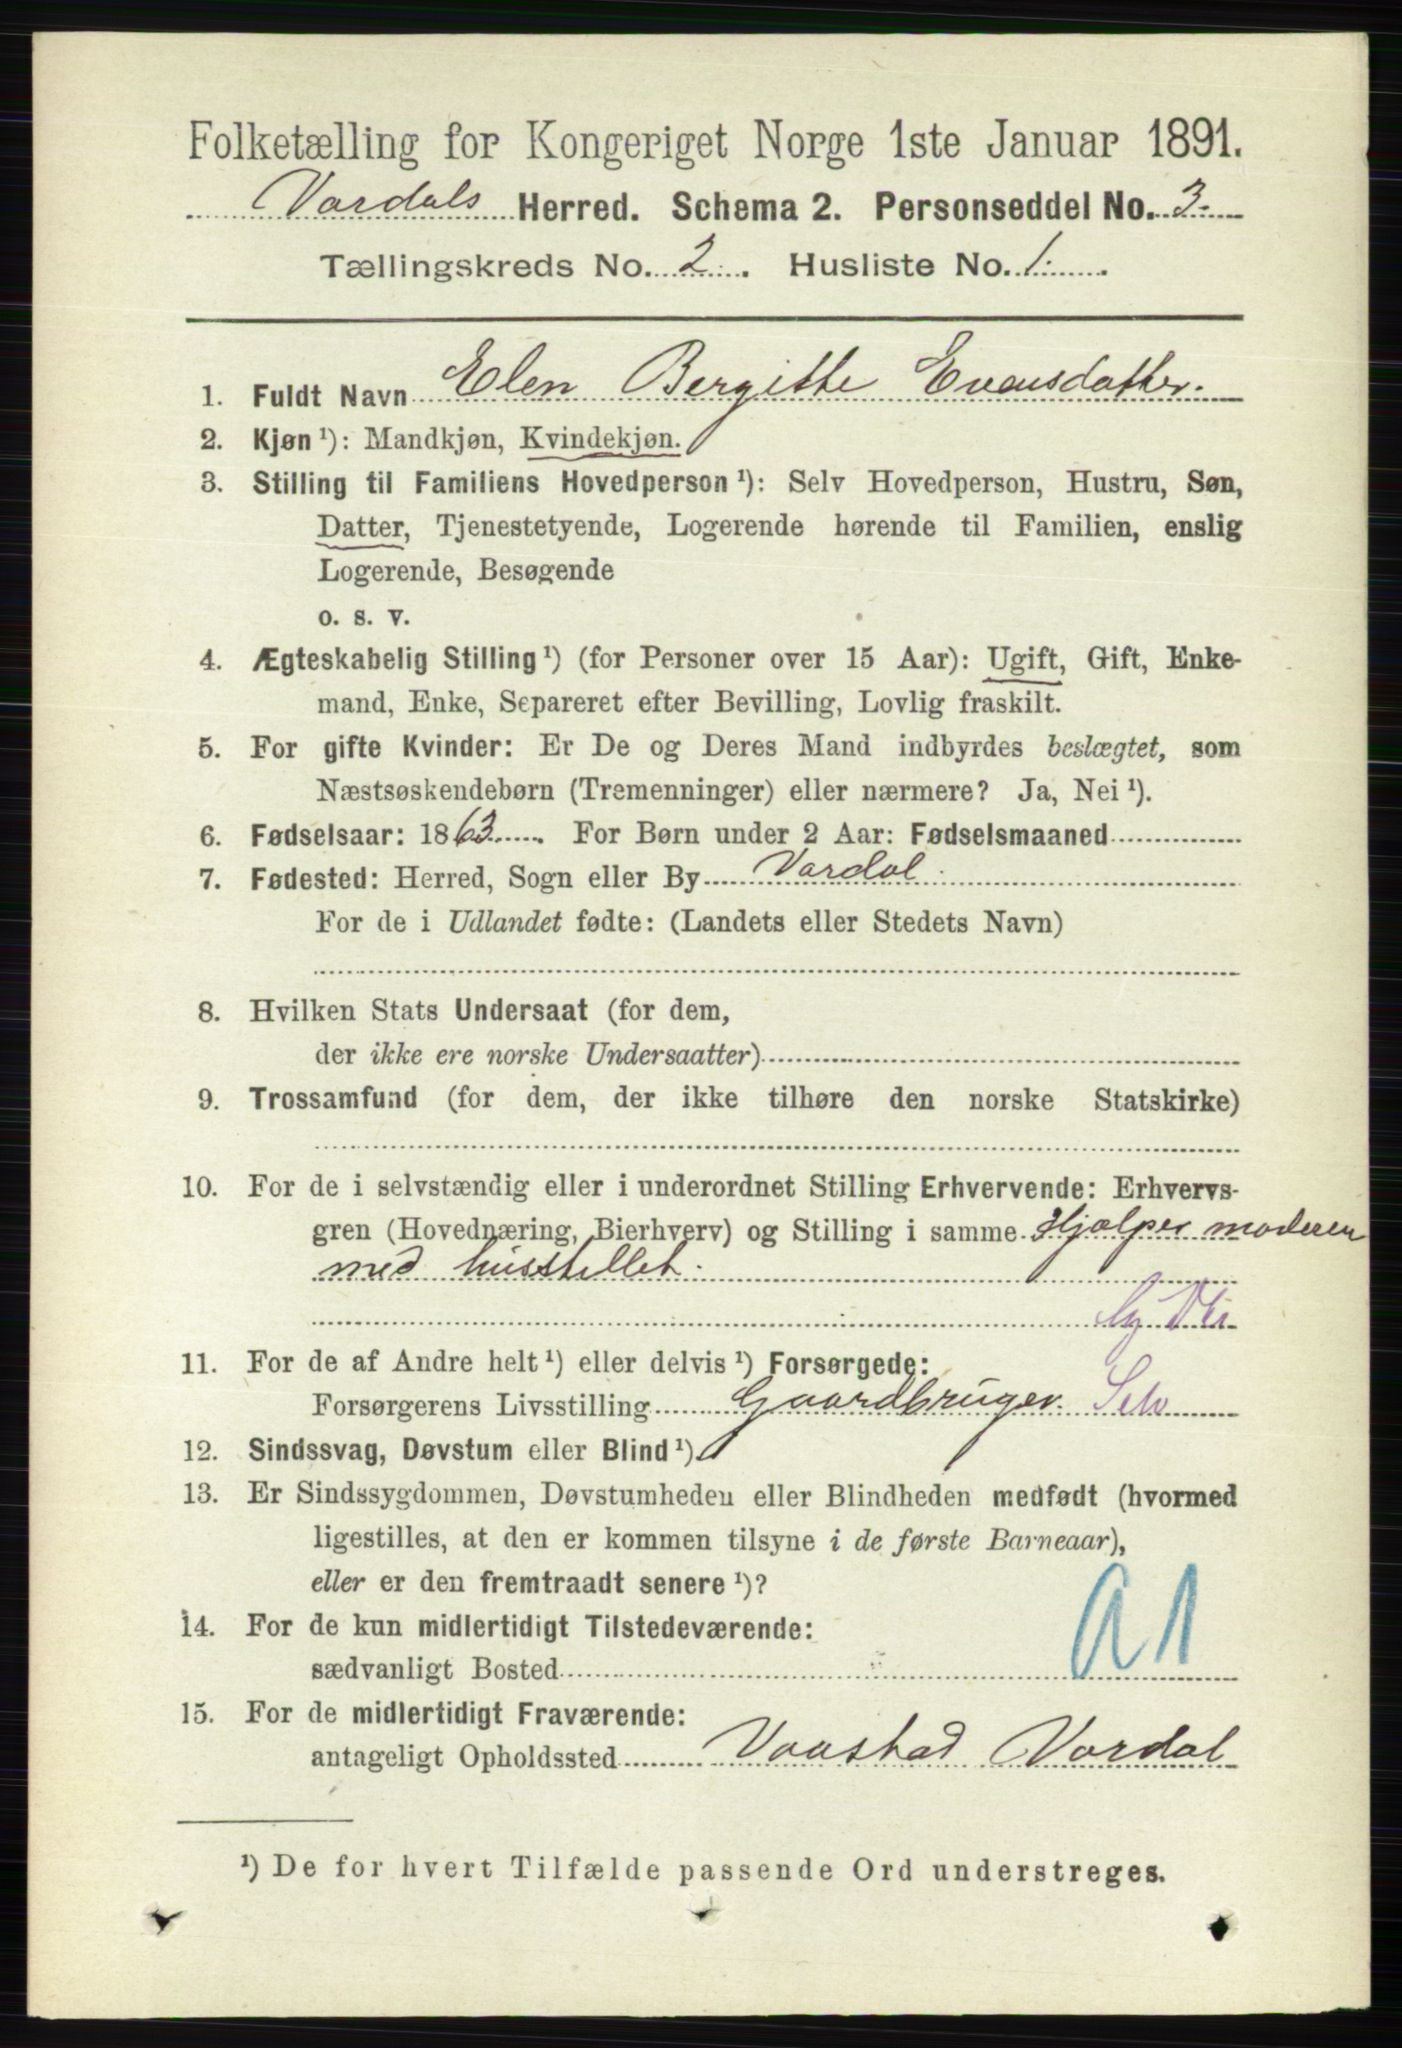 Folketælling for Kongeriget Norge 1ste Januar 1891.
Vardals Herred. Schema 2. Personseddel No. 3.
Tællingskreds No. 2. Husliste No. 1.
1. Fuldt Navn Elen Bergitte Evensdatter.
2. Kjøn ¹): Mandkjøn, Kvindekjøn.
3. Stilling til Familiens Hovedperson ¹): Selv Hovedperson, Hustru, Søn,
Datter, Tjenestetyende, Logerende hørende til Familien, enslig
Logerende, Besøgende
o. s. v.
4. Ægteskabelig Stilling ¹) (for Personer over 15 Aar): Ugift, Gift, Enke-
mand, Enke, Separeret efter Bevilling, Lovlig fraskilt.
5. For gifte Kvinder: Er De og Deres Mand indbyrdes beslægtet, som
Næstsøskendebørn (Tremenninger) eller nærmere? Ja, Nei ¹).
6. Fødselsaar: 1863. For Børn under 2 Aar: Fødselsmaaned
7. Fødested: Herred, Sogn eller By Vardal.
For de i Udlandet fødte: (Landets eller Stedets Navn)
8. Hvilken Stats Undersaat (for dem,
der ikke ere norske Undersaatter)
9. Trossamfund (for dem, der ikke tilhøre den norske Statskirke)
10. For de i selvstændig eller i underordnet Stilling Erhvervende: Erhvervs-
gren (Hovednæring, Bierhverv) og Stilling i samme Hjælper moderen
med husstellet.
11. For de af Andre helt ¹) eller delvis ¹) Forsørgede:
Forsørgerens Livsstilling Gaardbruger. Selv
12. Sindssvag, Døvstum eller Blind ¹).
13. Er Sindssygdommen, Døvstumheden eller Blindheden medfødt (hvormed
ligestilles, at den er kommen tilsyne i de første Barneaar),
eller er den fremtraadt senere ¹)?
14. For de kun midlertidigt Tilstedeværende:
sædvanligt Bosted a 1
15. For de midlertidigt Fraværende:
antageligt Opholdssted Vaastad Vardal
¹) De for hvert Tilfælde passende Ord understreges.